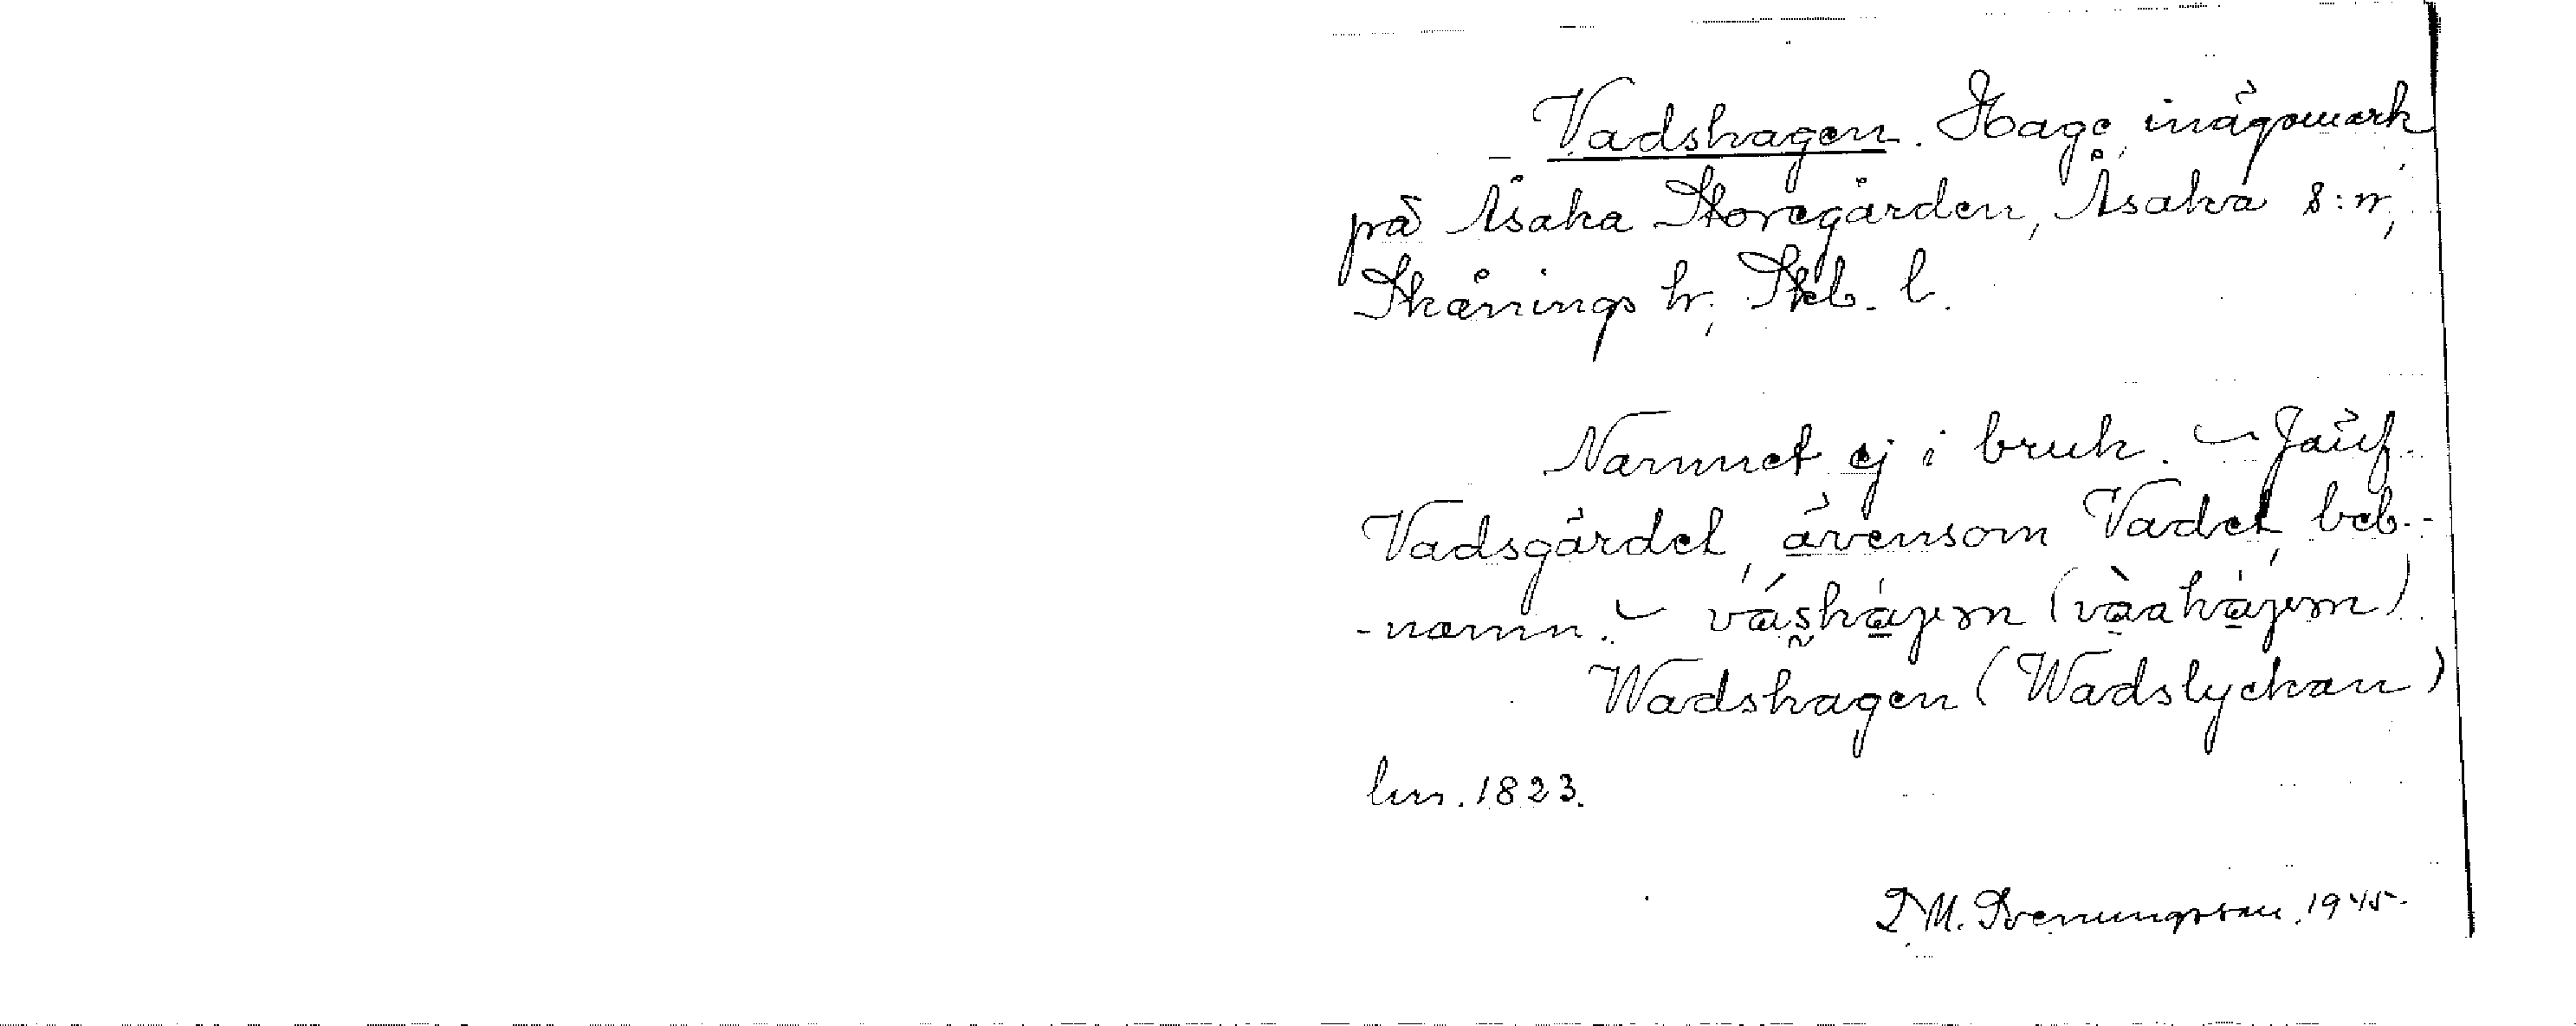 Vadshagen. Hage, inägomark
på Åsaka Storegården, Åsaka s:n,
Skånings hr, Skb. l.
Namnet ej i bruk. – Jämf.
Vadsgärdet, ävensom Vadet, beb.-
-namn. –
Wadshagen (Wadslyckan)
lm. 1823.
M. Svenungsson 1945.